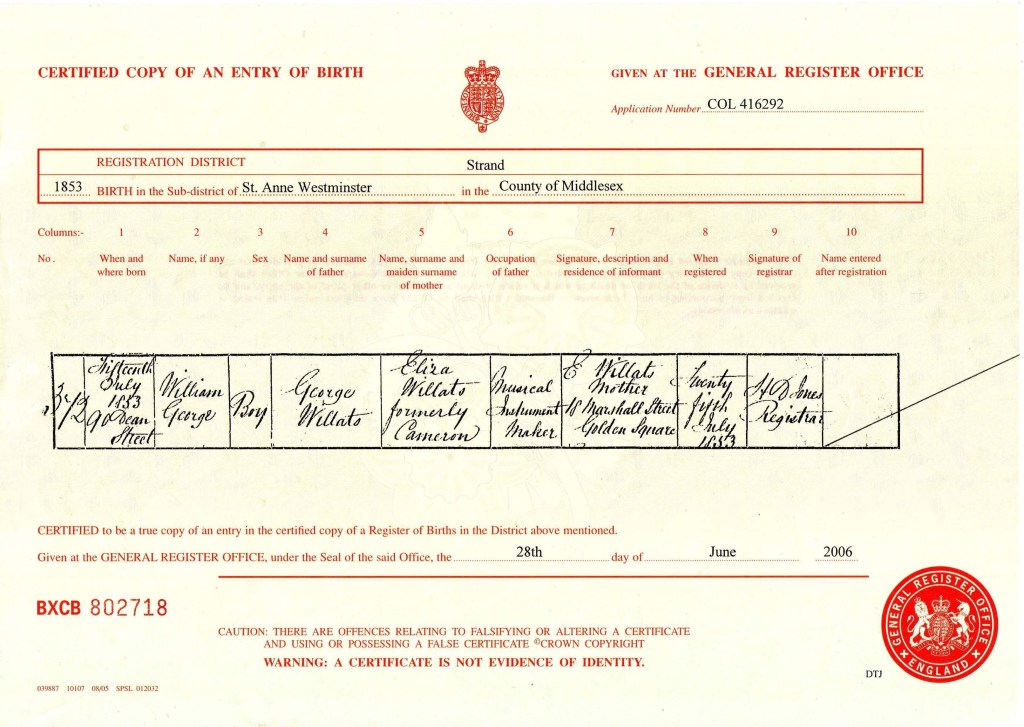 CERTIFIED COPY OF AN ENTRY OF BIRTH
GIVEN AT THE GENERAL REGISTER OFFICE
Application Number COL 416292
REGISTRATION DISTRICT Strand
1853 BIRTH in the Sub-district of St. Anne Westminster in the County of Middlesex
Columns:- 1 2 3 4 5 6 7 8 9 10
No. When and where born Name, if any Sex Name and surname of father Name, surname and maiden surname of mother Occupation of father Signature, description and residence of informant When registered Signature of registrar Name entered after registration
Fifteenth
July
1853
90 Dean
Street
William
George
Boy
George
Willats
Eliza
Willats
formerly
Cameron
Musical
Instrument
Maker
E Willats
Mother
18 Marshall Street
Golden Square
Twenty
fifth
July
1853
H D Jones
Registrar
CERTIFIED to be a true copy of an entry in the certified copy of a Register of Births in the District above mentioned.
Given at the GENERAL REGISTER OFFICE, under the Seal of the said Office, the 28th day of June 2006
BXCB 802718
CAUTION: THERE ARE OFFENCES RELATING TO FALSIFYING OR ALTERING A CERTIFICATE
AND USING OR POSSESSING A FALSE CERTIFICATE ©CROWN COPYRIGHT
WARNING: A CERTIFICATE IS NOT EVIDENCE OF IDENTITY.
GENERAL REGISTER OFFICE
ENGLAND
DTJ
039887 10107 08/05 SPSL 012032